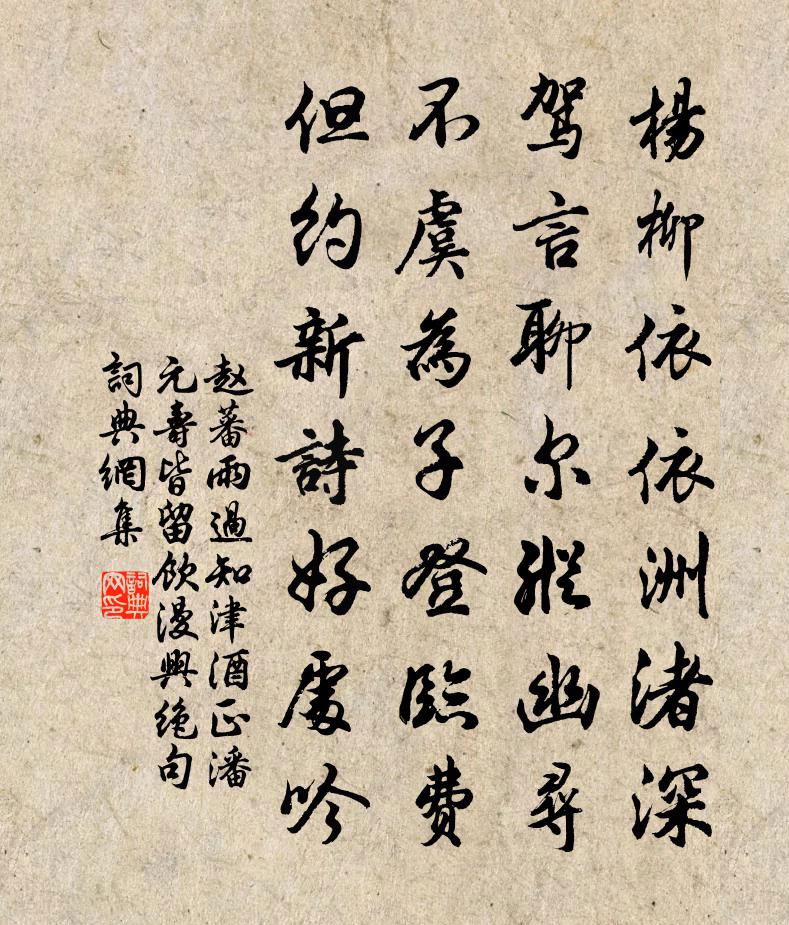 楊柳依依洲渚深
驾言聊尔縱幽尋
不虞為子登臨費
但約新詩好處吟
赵蕃雨過知津酒正潘
元壽皆留飲漫興絶句
詞典網集
詞典網印